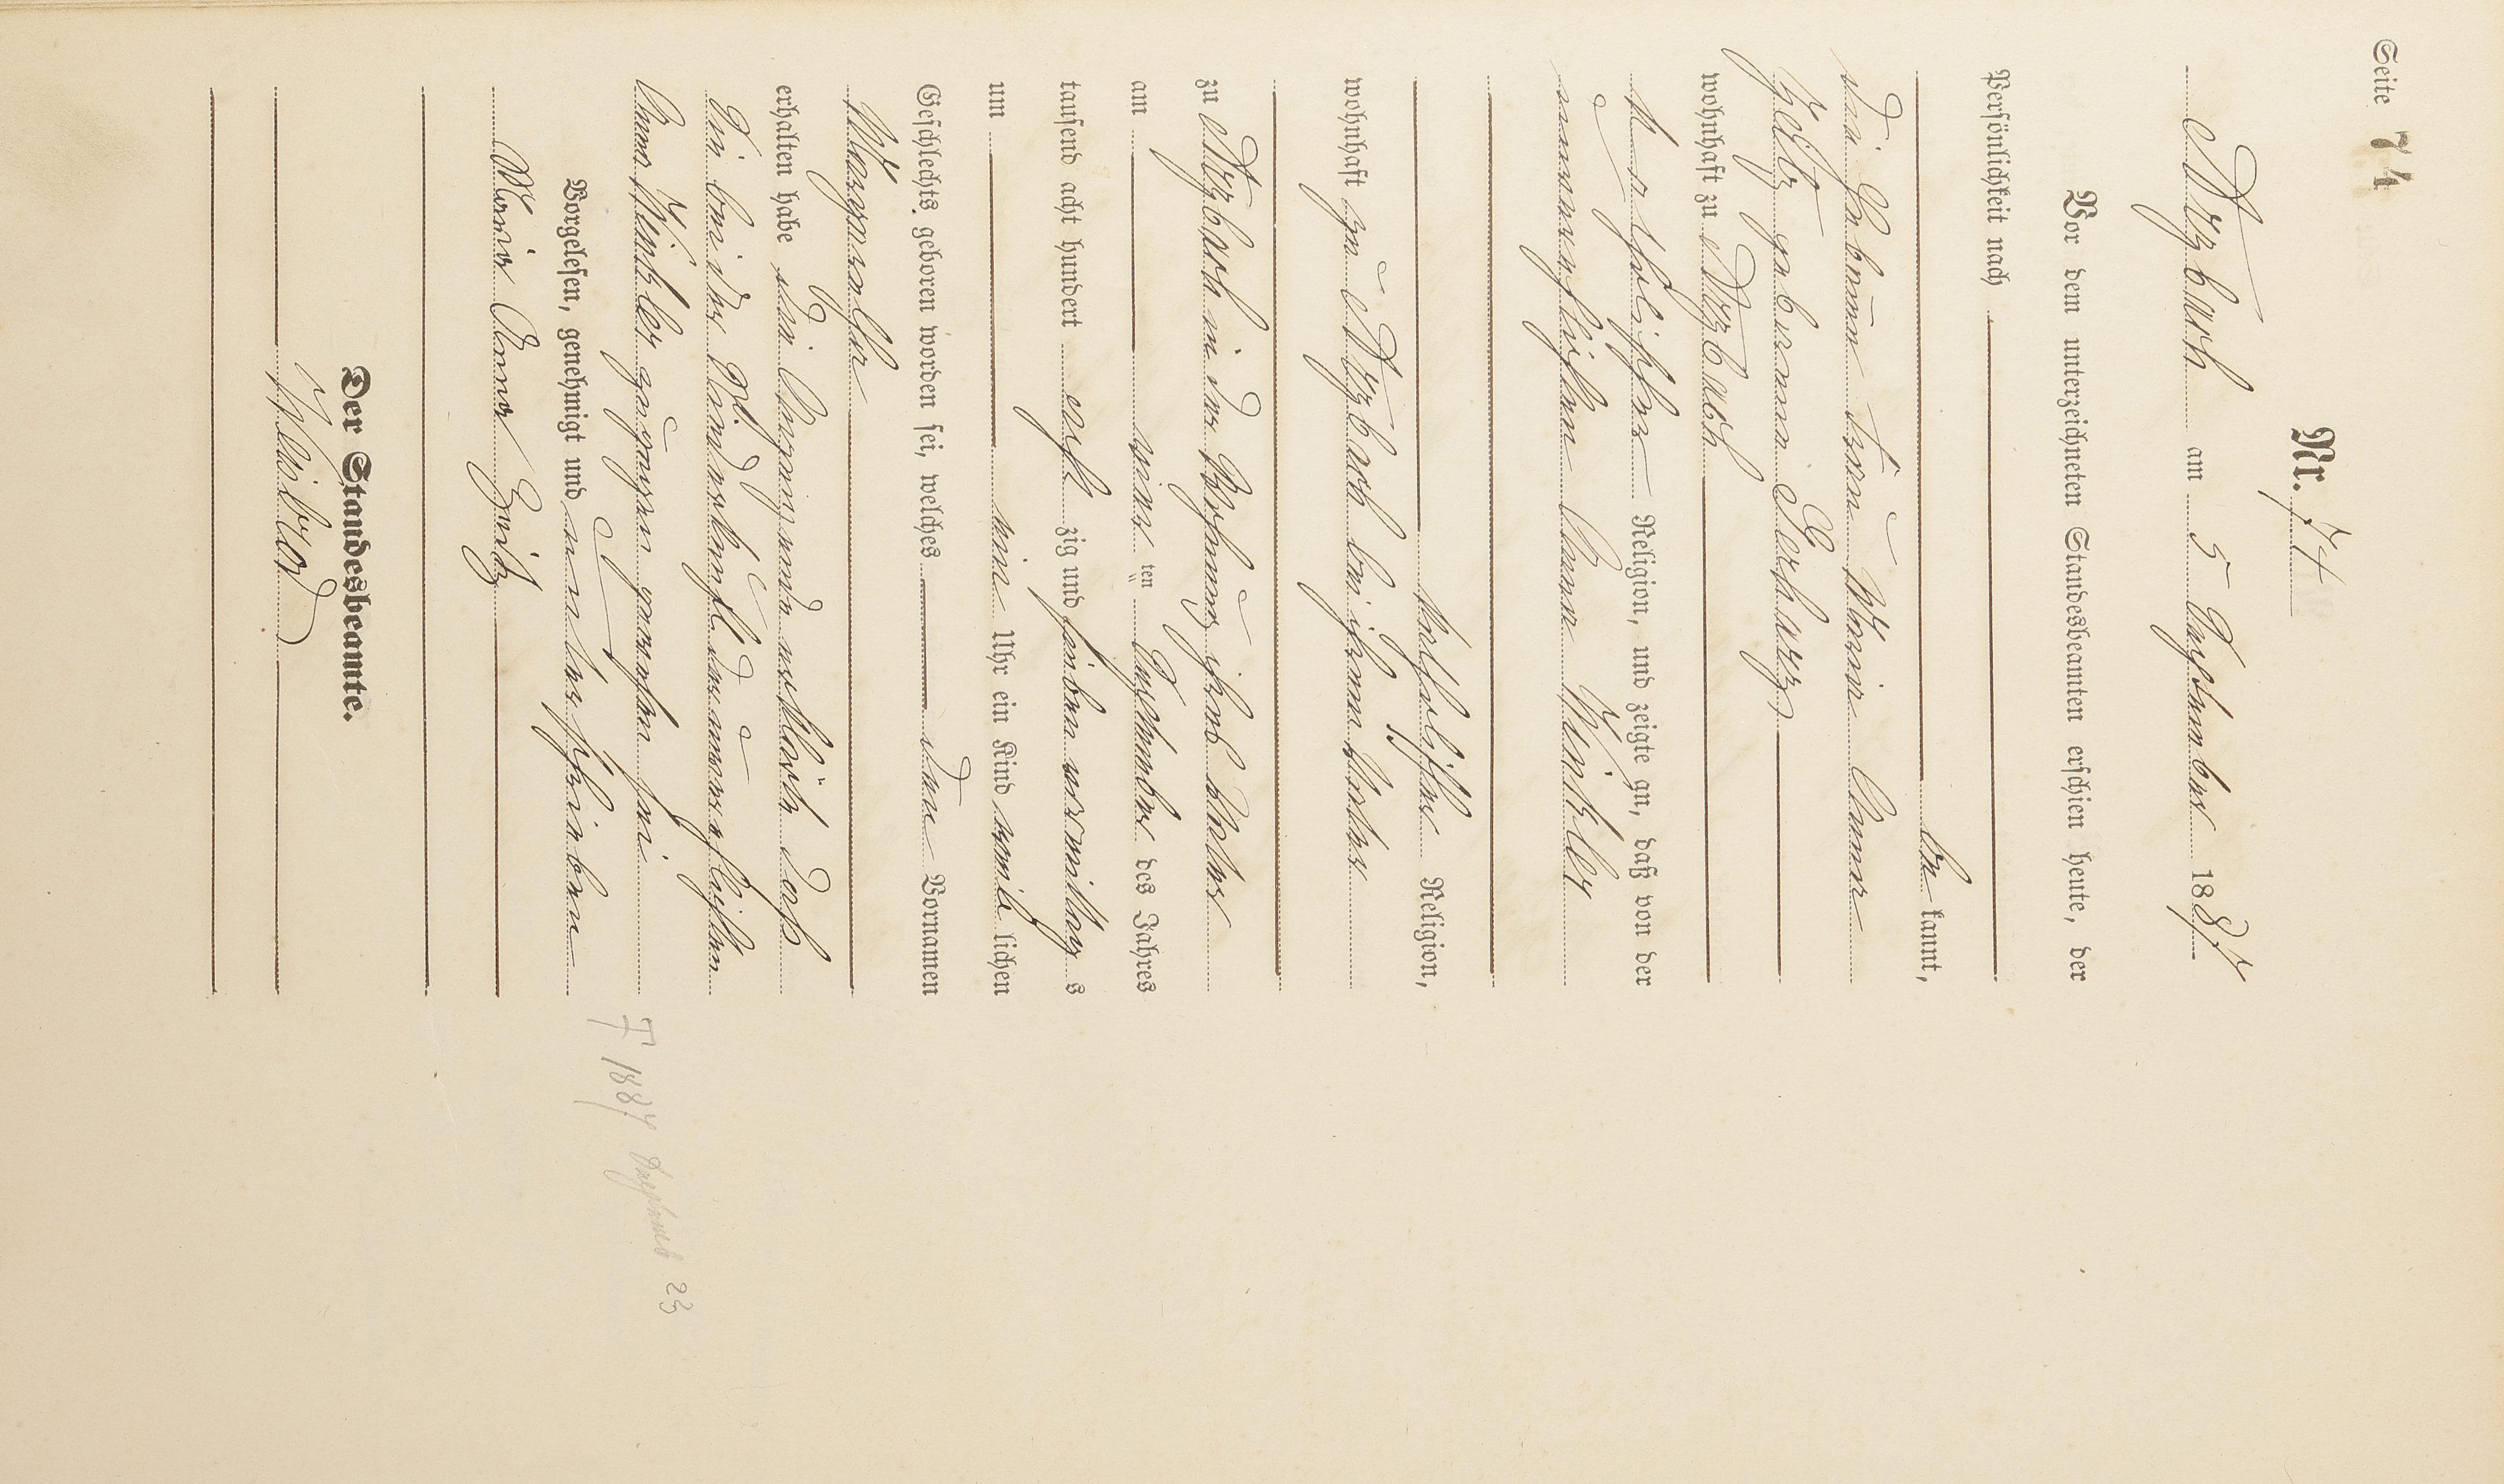 Seite 74
Nr. 74
Arzbach am 5 September 1887
Vor dem unterzeichneten Standesbeamten erschien heute, der
Persönlichkeit nach
be kannt,
die Hebamme Frau Maria Anna
Zeitz geborenen Gerharz
wohnhaft zu Arzbach
katholischer Religion, und zeigte an, daß von der
unverehelichten Anna Winkler
katholischer Religion,
wohnhaft zu Arzbach bei ihrem Vater
zu Arzbach in der Wohnung ihres Vaters
am vier ten September des Jahres
tausend acht hundert acht zig und sieben vormittag s
um ein Uhr ein Kind weib lichen
Geschlechts geboren worden sei, welches den Vornamen
Margaretha
erhalten habe. Die Anzeigende erklärte daß
sie bei der Niederkunft der unverehelichten
Anna Winkler zugegen gewesen sei
Vorgelesen, genehmigt und unterschrieben
Maria Anna Zeitz
Der Standesbeamte.
† 1887 September 23